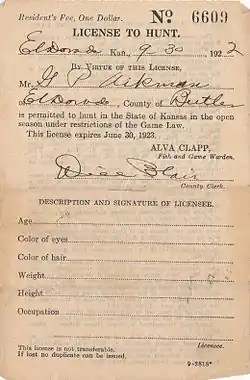 Resident's Fee, One Dollar. No 6609
LICENSE TO HUNT.
El Dorado Kan., 9 30 1922
BY VIRTUE OF THIS LICENSE,
Mr. G P Aikman
of El Dorado, County of Butler
is permitted to hunt in the State of Kansas in the open
season under restrictions of the Game Law.
This license expires June 30, 1923.
ALVA CLAPP,
Fish and Game Warden.
Blair
County Clerk.
DESCRIPTION AND SIGNATURE OF LICENSEE.
Age
Color of eyes
Color of hair
Weight
Height
Occupation
Licensee.
This license is not transferable.
If lost no duplicate can be issued.
9-3818*